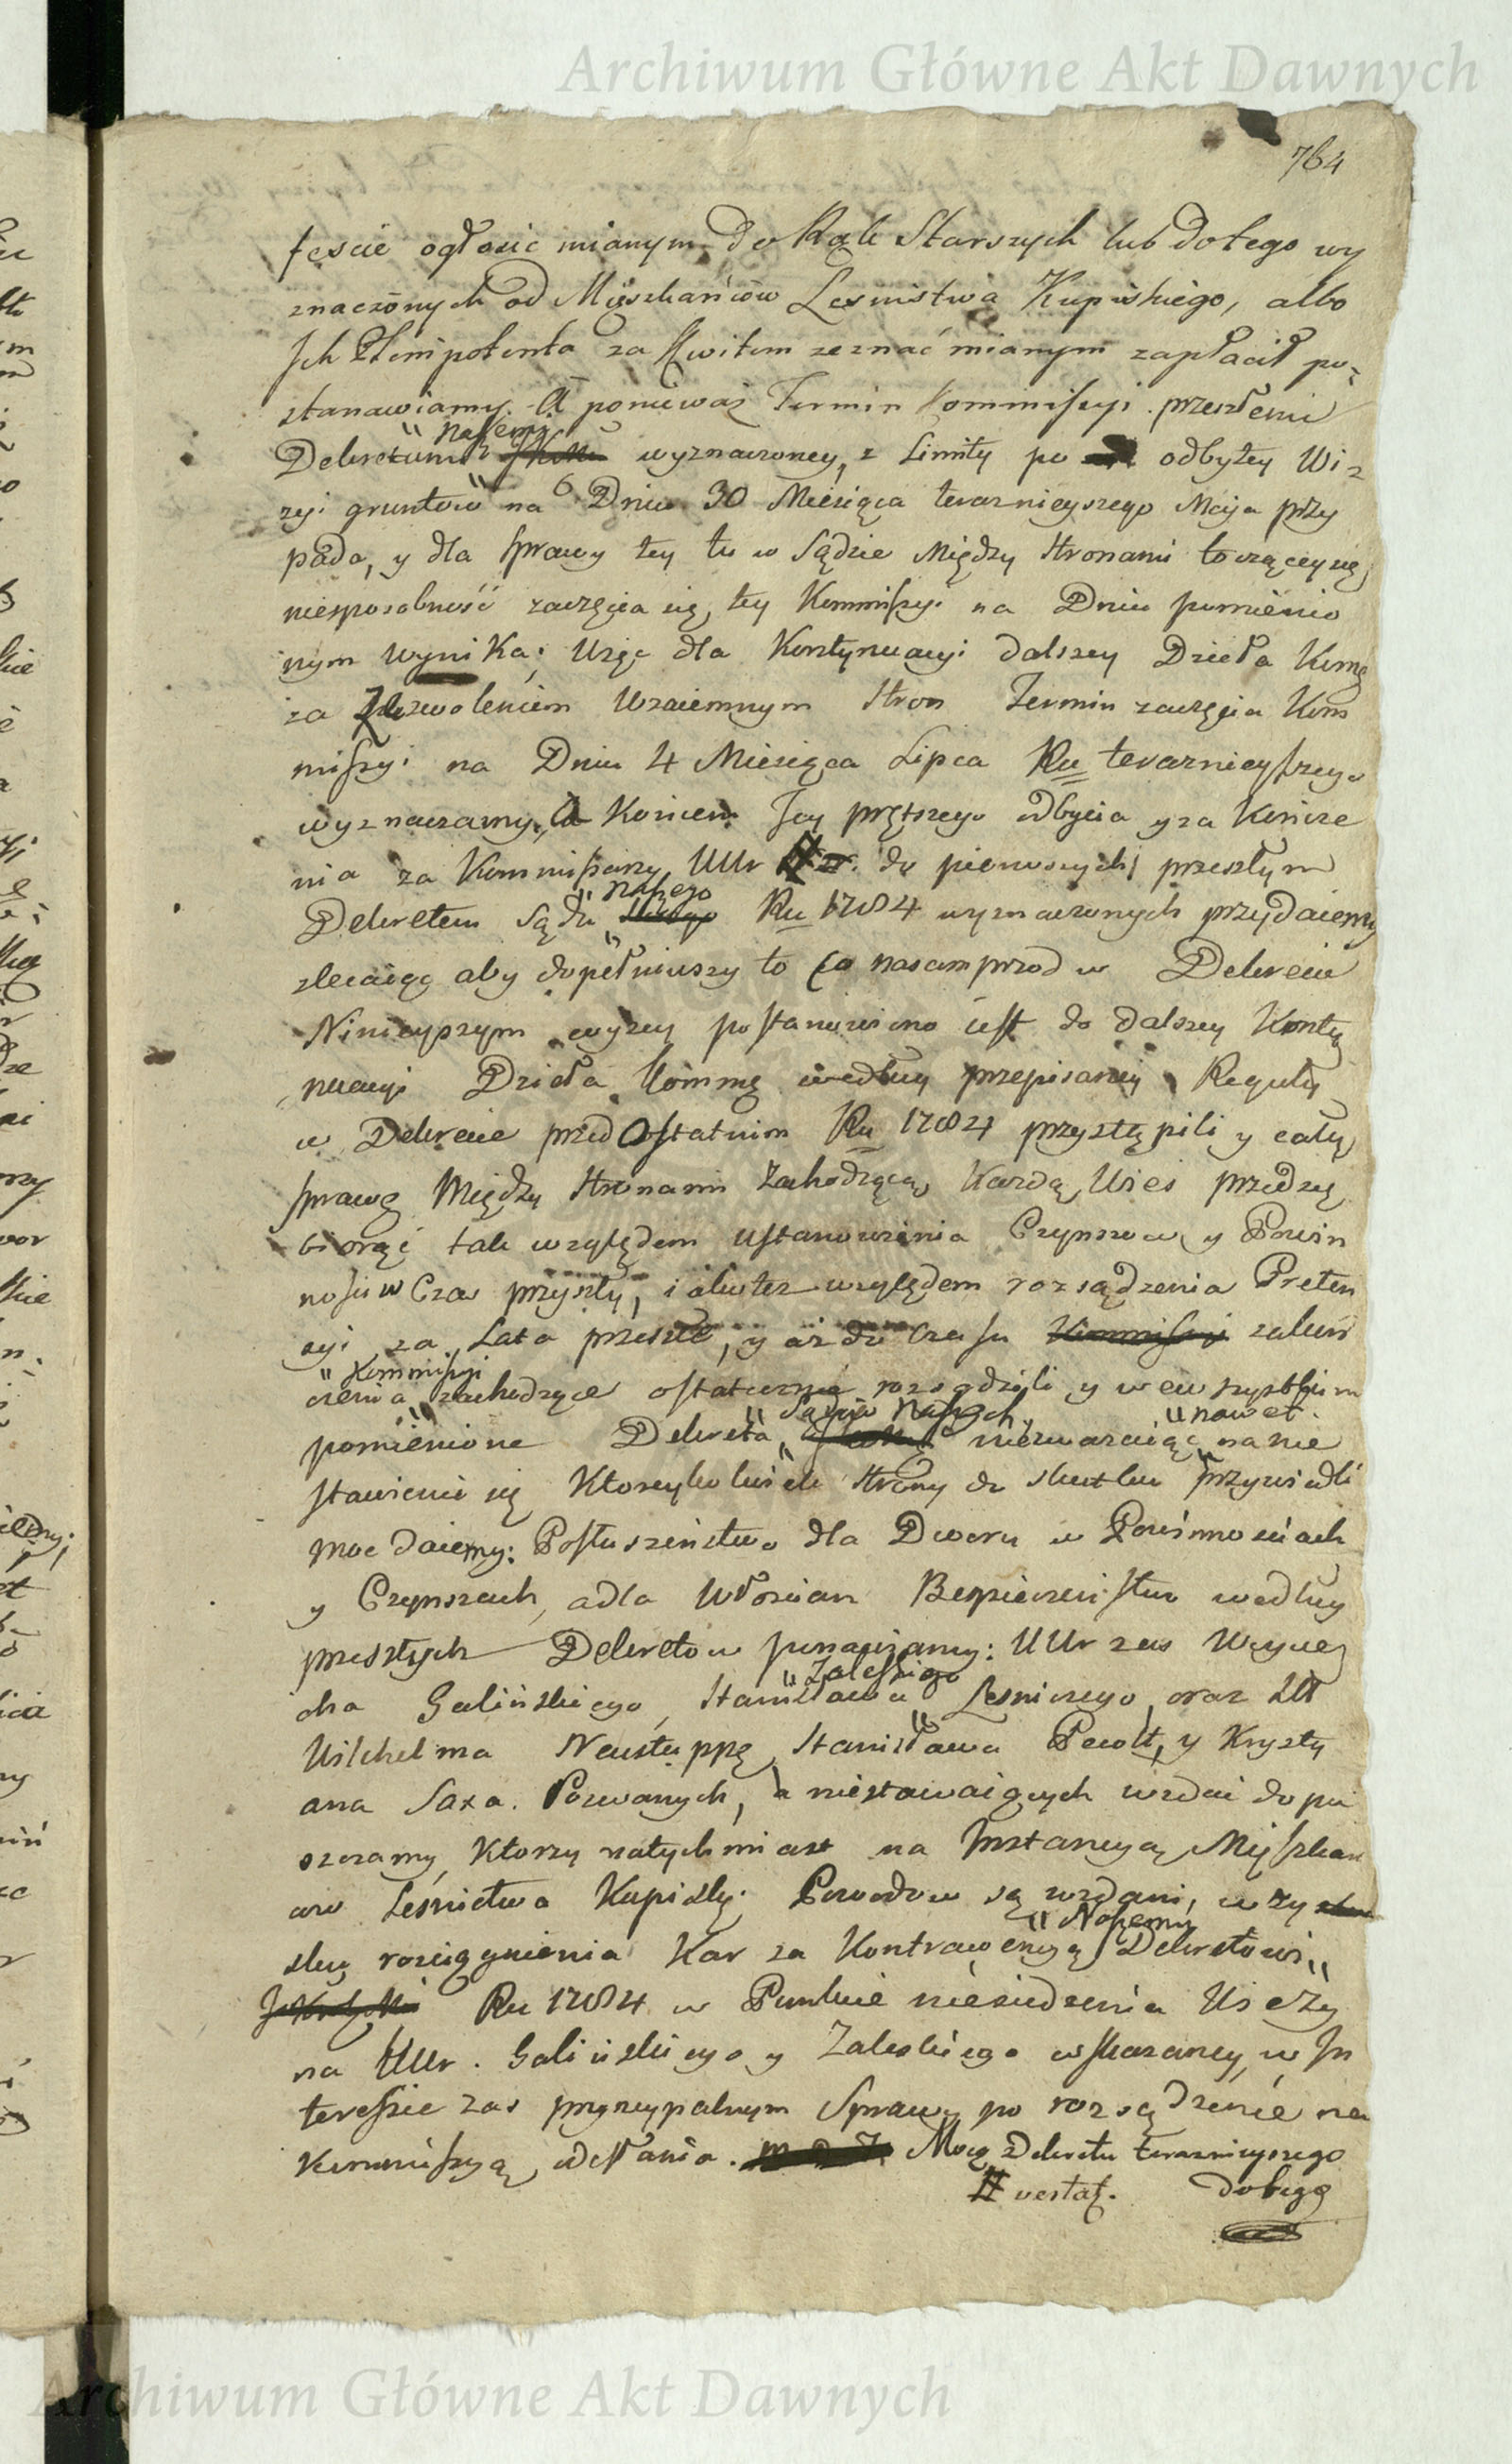 Archiwum Główne Akt Dawnych
764
fescie ogłosić mianym do Rąk Starszych lub do tego wy
znaczonych od Mięszkańców Lesnistwa Kupiskiego, albo
Jch Plenipotenta za Kwitem zeznać mianym zapłacił po
stanawiamy. A ponieważ Termin Kommissyi przeszłemi
Dekretami naszemi wyznaczoney, z Limity po odbytey Wi
zyi gruntow na Dniu 30 Miesiąca teraznieyszego Maja przy
pada, y dla sprawy tey tu w Sądzie między stronami toczącey się
niesposobność zaczęcia się tey Kommissyi na Dniu pomienio
nym wynika;
dla Kontynuacyi dalszey Dzieła Kommę
za zezwoleniem Wzaiemnym stron Termin zaczęcia Kom
missyi na Dniu 4 Miesiąca Lipca Ru terazniejszego
wyznaczamy, A Koncem Jey prętszego odbycia y za Koncze
nia za Kommissarzy UUr do pierwszych przeszłym
Dekretem Sądu naszego Ru 1784 wyznaczonych przydaiemy
zlecaiąc aby dopełniwszy to co nasamprzod w Dekrecie
Ninieyszym wyzey postanowiono iest do dalszey Konty
nuacyi Dzieła Kommę według przepisaney Reguły
w Dekrecie przed Ostatnim Ru 1784 przystąpili y całą
sprawę Między stronami Zachodzącą Kazdą Wies przedzię
biorąć tak względem ustanowienia Czynszow y Powin
nosci w Czas przyszły, iako też względem rozsądzenia Preten
syi za Lata przeszłe, y aż do czasu Kommissyi zakoń
czenia Kommissyi zachodzące ostatecznie rozsądzili y wewszystkiem
pomienione Dekreta Sądów Naszych niezważaiąc nawet na nie
stawienie się Ktoreykolwiek strony do skutku przywiedli
moc daiemy: Posłuszenstwo dla Dworu w Powinnosciach
y Czynszach, a dla Włoscian Bespieczenstwo według
przeszłych Dekretow ponawiamy: UUr zas Woycie
cha Galińskiego, Stanisława Zaleskiego Lesniczego, oraz
Wilhelma Neustuppę, Stanisława Pewolt, y Krysty
ana Saxa. Pozwanych, a niestawaiących wzdai dopu
szczamy, Ktorzy natychmiast na Instancyą Mięszkan
cow Lesnictwa Kupiskię. Powodow są wzdani, w zy
sku rosciągnienia Kar za Kontrawencyą Dekretowi Naszemu
Ru 1784 w Punkcie niesiedzenia Wieży
na UUr. Galińskiego y Zaleskiego wskazaney, w In
teressie zas pryncypalnym Sprawy po rozsądzenie na
Kommissyą odesłania. Mocą Dekretu terazniejszego
vertat. Do tego
Archiwum Główne Akt Dawnych